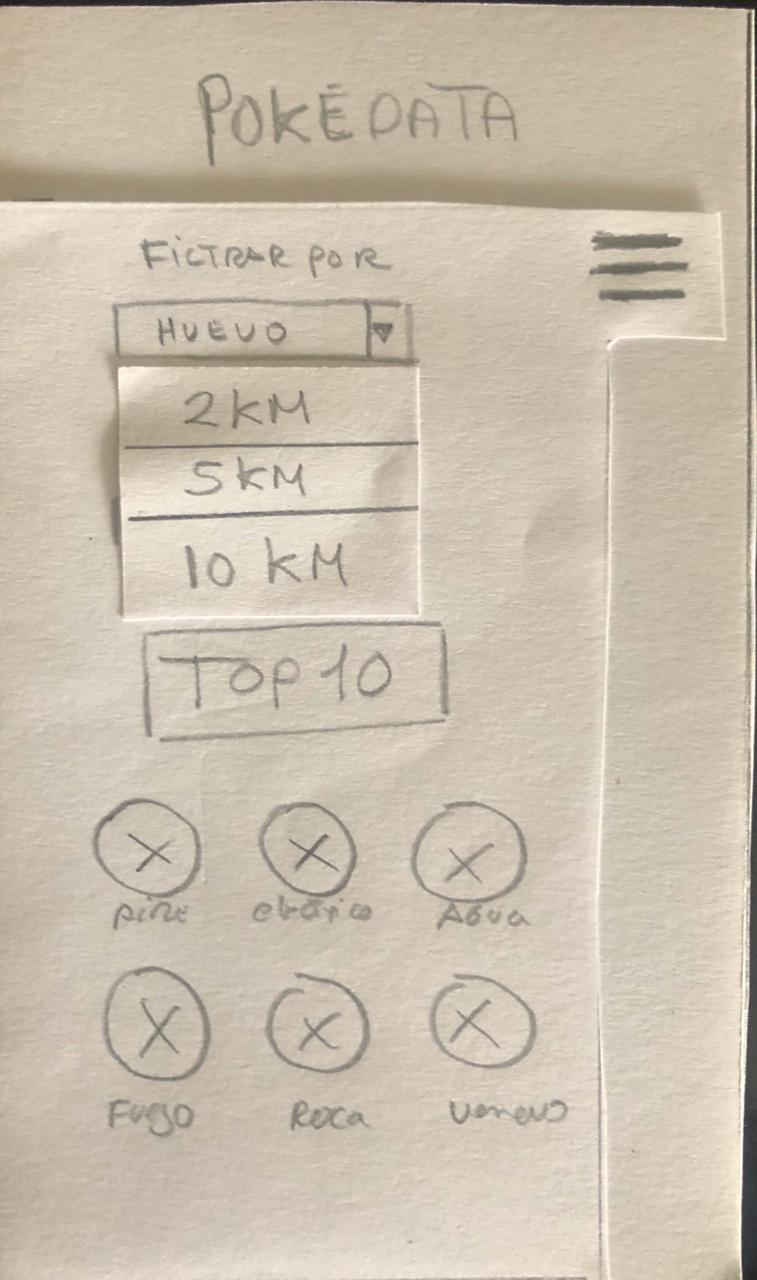 POKÉDATA
FILTRAR POR
HUEVO
2 KM
5 KM
10 KM
TOP 10
Aire eléctrico Agua
Fuego Roca veneno